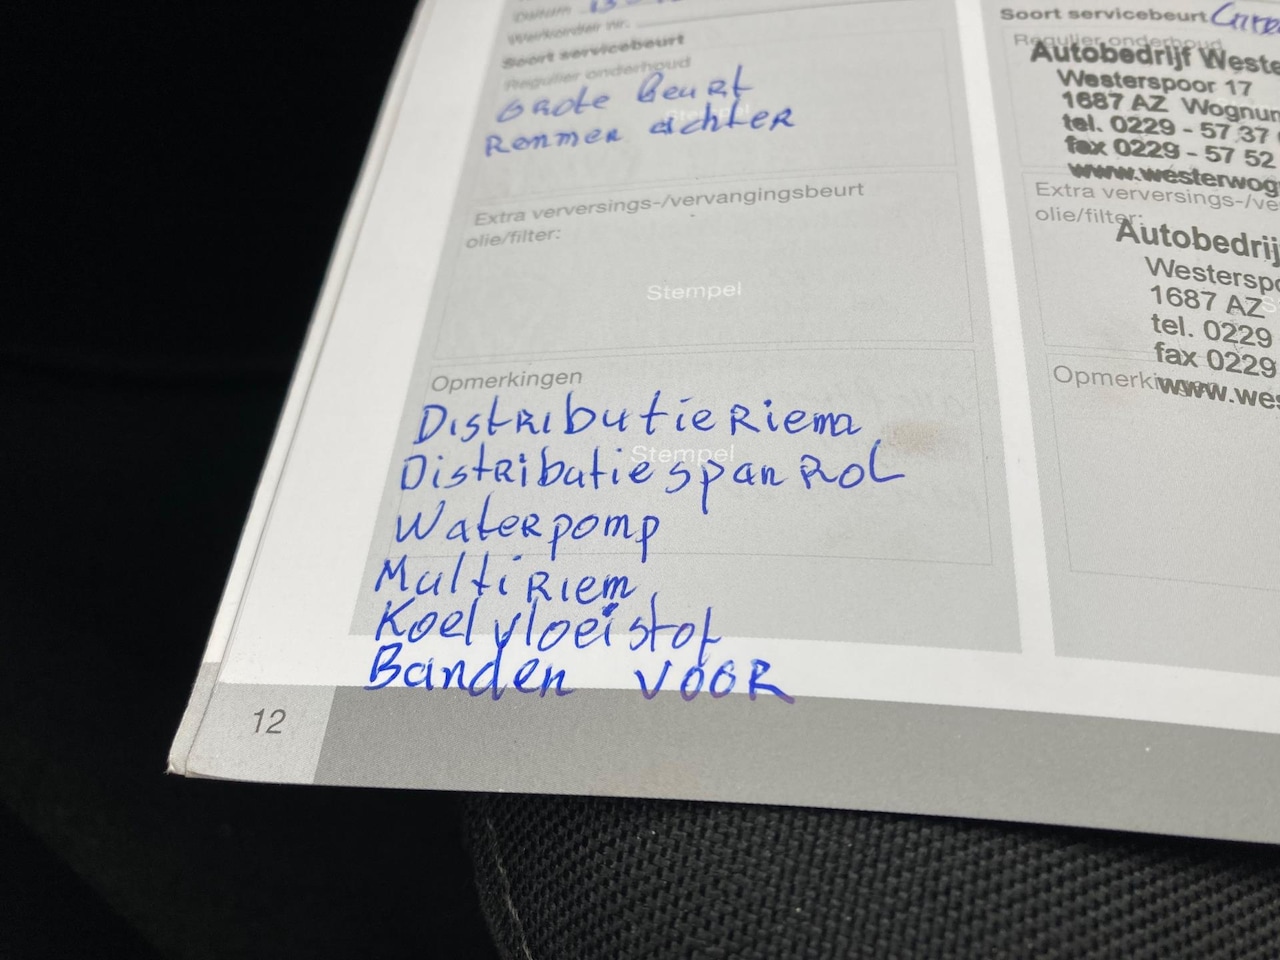 Datum 13
Werkorder nr.
Soort servicebeurt
Regulier onderhoud
Grote beurt
Remmen achter
Stempel
Extra verversings-/vervangingsbeurt
olie/filter:
Stempel
Opmerkingen
DistributieRiem
Distributie spanRol
Stempel
Waterpomp
MultiRiem
Koelvloeistof
Banden VOOR
12
Soort servicebeurt
Regulier onderhoud
Autobedrijf Weste
Westerspoor 17
1687 AZ Wognum
tel. 0229 - 57 37
fax 0229 - 57 52
www.westerwog
Extra verversings-/ve
olie/filter:
Autobedrij
Westerspo
1687 AZ
tel. 0229
fax 0229
www.wes
Opmerkingen